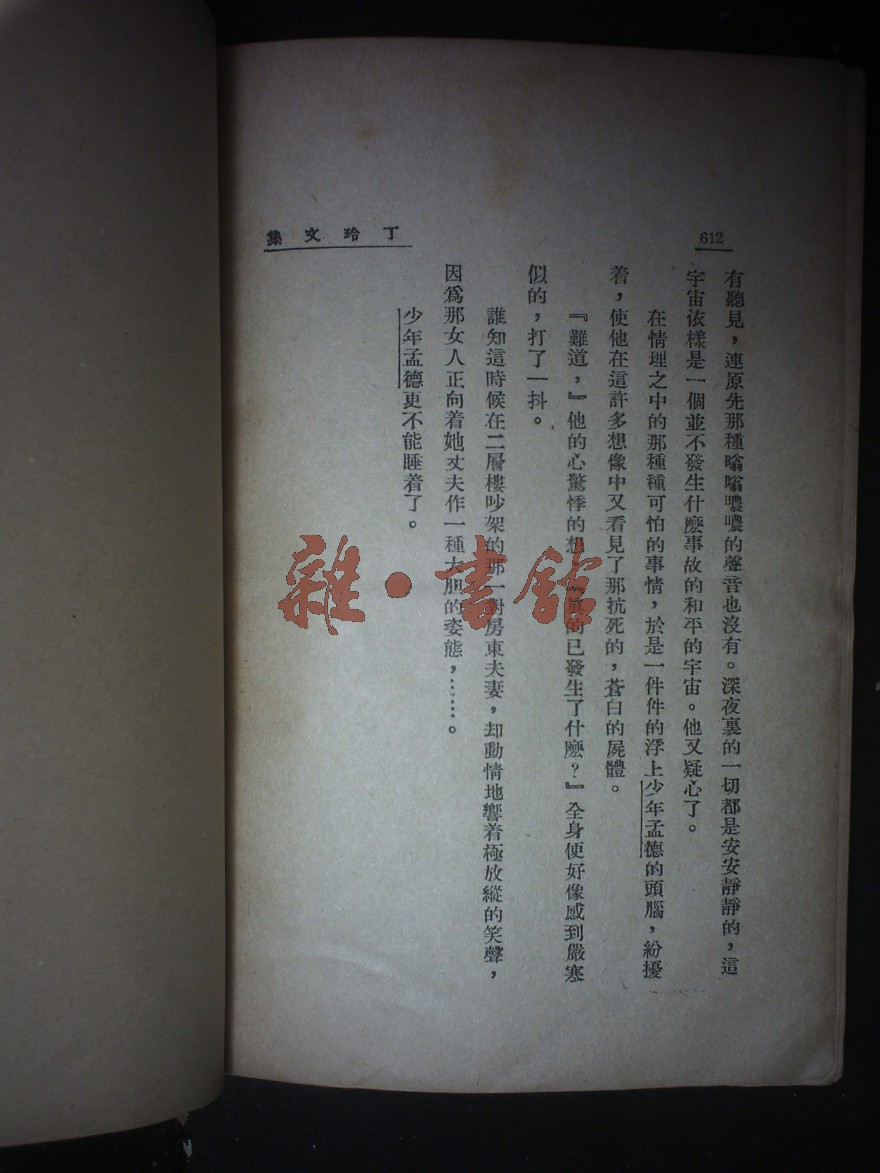 612
丁玲文集
有聽見，連原先那種嗡嗡噥噥的聲音也沒有。深夜裏的一切都是安安靜靜的，這
宇宙依樣是一個並不發生什麽事故的和平的宇宙。他又疑心了。
在情理之中的那種種可怕的事情，於是一件件的浮上少年孟德的頭腦，紛擾
着，使他在這許多想像中又看見了那抗死的，蒼白的屍體。
『難道，』他的心驚悸的想，『真的已發生了什麽？』全身便好像感到嚴寒
似的，打了一抖。
誰知這時候在二層樓吵架的那一對房東夫妻，却動情地響着極放縱的笑聲，
因爲那女人正向着她丈夫作一種大胆的姿態，……。
少年孟德更不能睡着了。
雜·書館